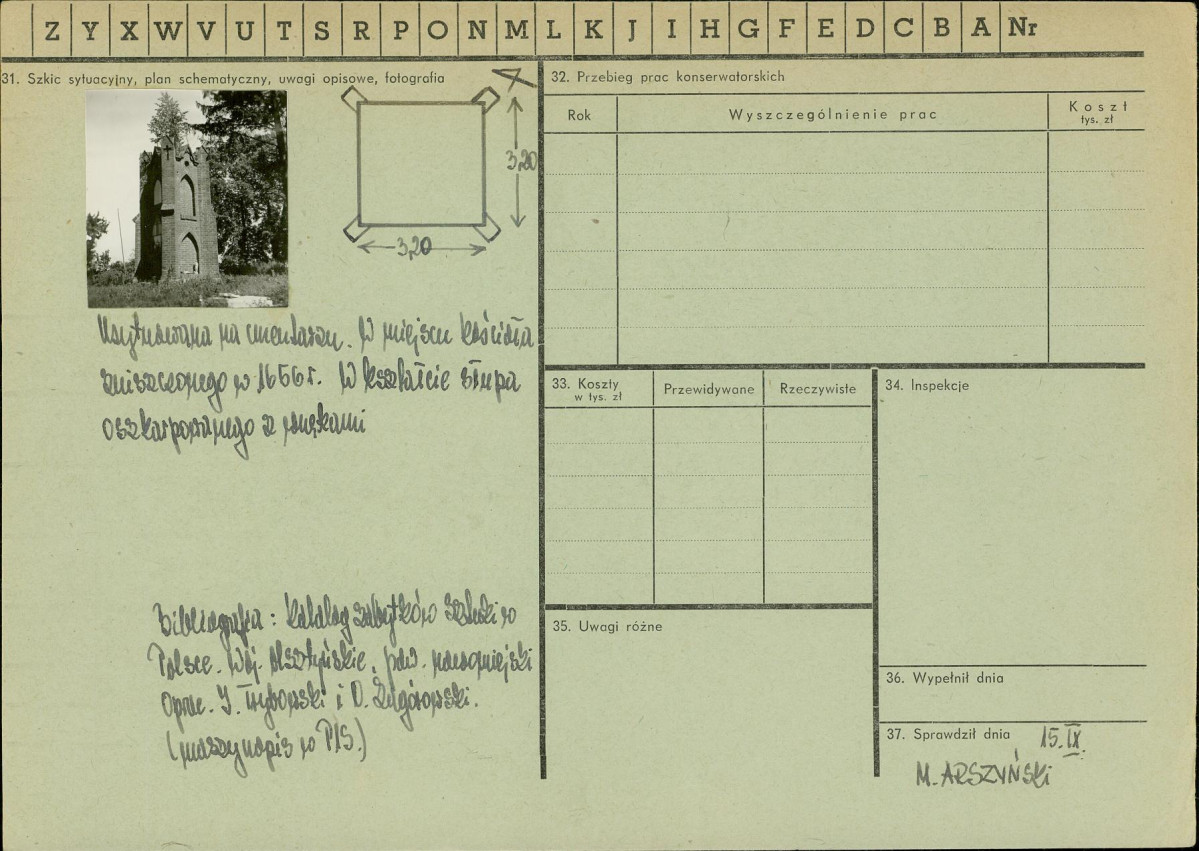 Z Y X W V U T S R P O N M L K J I H G F E D C B A Nr
31. Szkic sytuacyjny, plan schematyczny, uwagi opisowe, fotografia
3,20
3,20
Usytuowana na cmentarzu. W miejscu kościoła
zniszczonego w 1656 r. W kształcie słupa
oszkarpowanego z wnękami
Bibliografia: Katalog zabytków Sztuki w
Polsce. Woj. Olsztyńskie, pow. nowomiejski
Oprac. J.
i
(maszynopis w PIS.)
32. Przebieg prac konserwatorskich
Rok
Wyszczególnienie prac
Koszt
tys. zł
33. Koszty
w tys. zł
Przewidywane
Rzeczywiste
34. Inspekcje
35. Uwagi różne
36. Wypełnił dnia
37. Sprawdził dnia 15.IX.
M. ARSZYŃSKI